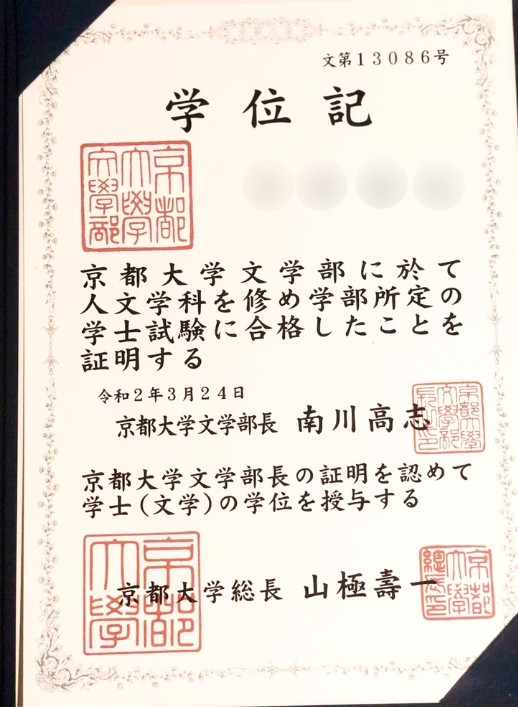 文第13086号
学位記
京都大学文学部
京都大学文学部に於て
人文学科を修め学部所定の
学士試験に合格したことを
証明する
令和2年3月24日
京都大学文学部長 南川高志
京都大学文学部長の証明を認めて
学士(文学)の学位を授与する
京都大学総長 山極壽一
京都大学